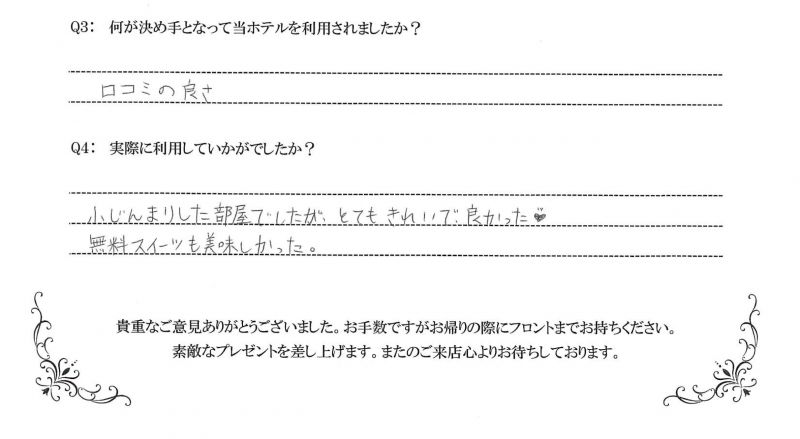 Q3: 何が決め手となって当ホテルを利用されましたか？
口コミの良さ
Q4: 実際に利用していかがでしたか？
小じんまりした部屋でしたが、とてもきれいで、良かった♥
無料スイーツも美味しかった。
貴重なご意見ありがとうございました。お手数ですがお帰りの際にフロントまでお持ちください。
素敵なプレゼントを差し上げます。またのご来店心よりお待ちしております。